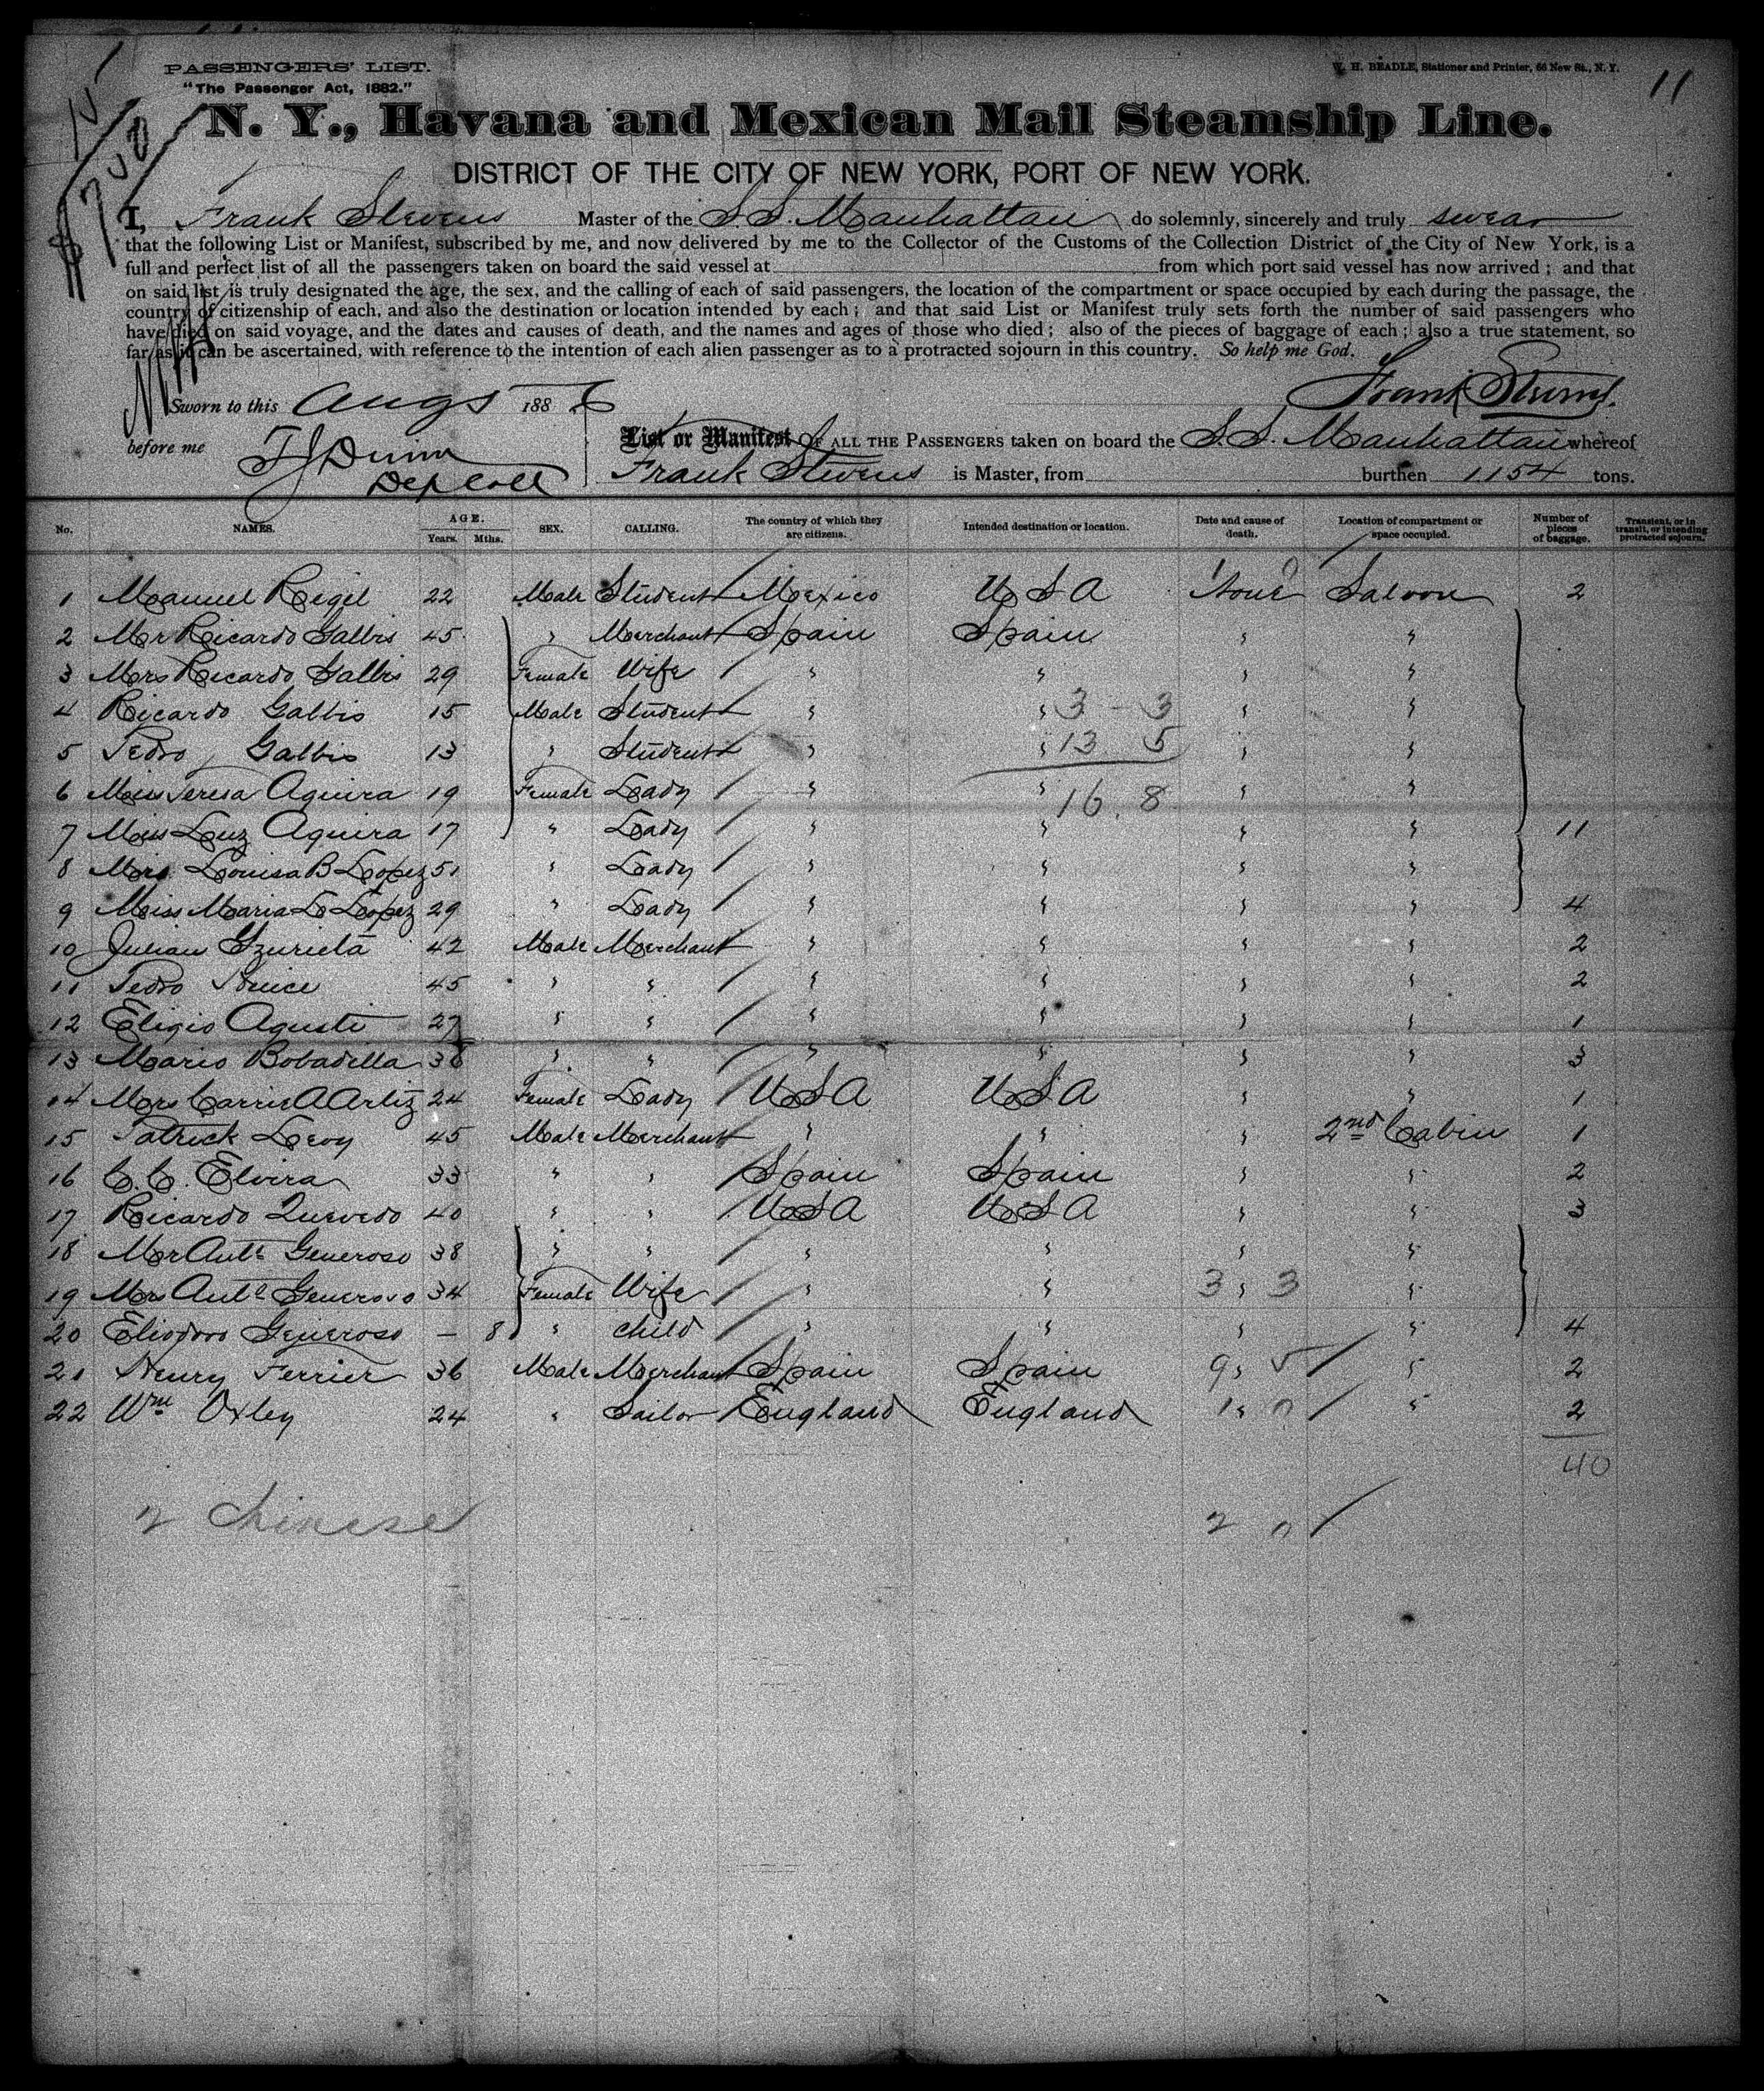 PASSENGERS' LIST.
"The Passenger Act, 1882."
W. H. BEADLE, Stationer and Printer, 66 New St., N. Y.
11
N. Y., Havana and Mexican Mail Steamship Line.
DISTRICT OF THE CITY OF NEW YORK, PORT OF NEW YORK.
I, Frank Stevens Master of the S.S. Manhattan do solemnly, sincerely and truly swear
that the following List or Manifest, subscribed by me, and now delivered by me to the Collector of the Customs of the Collection District of the City of New York, is a
full and perfect list of all the passengers taken on board the said vessel at from which port said vessel has now arrived; and that
on said list is truly designated the age, the sex, and the calling of each of said passengers, the location of the compartment or space occupied by each during the passage, the
country of citizenship of each, and also the destination or location intended by each; and that said List or Manifest truly sets forth the number of said passengers who
have died on said voyage, and the dates and causes of death, and the names and ages of those who died; also of the pieces of baggage of each; also a true statement, so
far as it can be ascertained, with reference to the intention of each alien passenger as to a protracted sojourn in this country. So help me God.
Frank Stevens.
Sworn to this Aug 5 1886
before me T J Dunn
Dep Coll
List or Manifest OF ALL THE PASSENGERS taken on board the S.S. Manhattan whereof
Frank Stevens is Master, from burthen 1154 tons.
No. NAMES. AGE. Years. Mths. SEX. CALLING. The country of which they are citizens. Intended destination or location. Date and cause of death. Location of compartment or space occupied. Number of pieces of baggage. Transient, or in transit, or intending protracted sojourn.
1 Manuel Reigel 22 Male Student Mexico U S A None Saloon 2
2 Mr Ricardo Galbis 45 " Merchant Spain Spain " "
3 Mrs Ricardo Galbis 29 Female Wife " " " "
4 Ricardo Galbis 15 Male Student " " 3 - 3 " "
5 Pedro Galbis 13 " Student " " 13 5 " "
6 Miss Teresa Aguira 19 Female Lady " " 16 8 " "
7 Miss Luz Aguira 17 " Lady " " " " 11
8 Mrs. Louisa B Lopez 51 " Lady " " " "
9 Miss Maria L Lopez 29 " Lady " " " " 4
10 Julian Yzurieta 42 Male Merchant " " " " 2
11 Pedro 45 " " " " " " 2
12 Eligio Agusti 27 " " " " " " 1
13 Mario Bobadilla 38 " " " " " " 3
14 Mrs Carrie A Artiz 24 Female Lady U S A U S A " " 1
15 Patrick Leroy 45 Male Merchant " " " 2nd Cabin 1
16 C. C. Elvira 33 " " Spain Spain " " 2
17 Ricardo Quevedo 40 " " U S A U S A " " 3
18 Mr Anto Generoso 38 " " " " " "
19 Mrs Anto Generoso 34 Female Wife " " 3 " 3 "
20 Eliodoro Generoso — 8 " child " " " " 4
21 Henry Ferrier 36 Male Merchant Spain Spain 9 " 5 " 2
22 Wm Oxley 24 " Sailor England England 1 " 0 " 2
40
2 Chinese 2 0